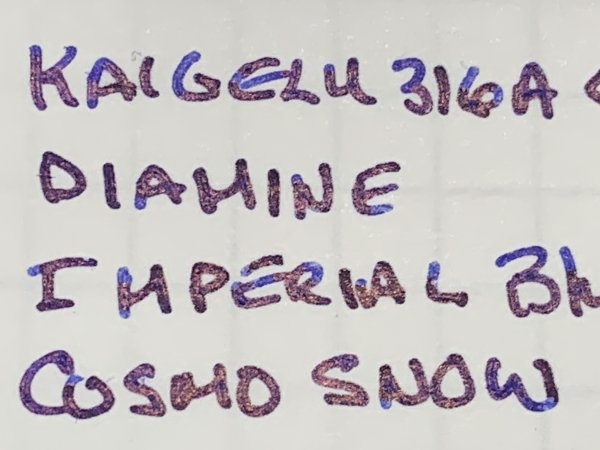 KAIGELU 316A
DIAMINE
IMPERIAL
COSMO SNOW